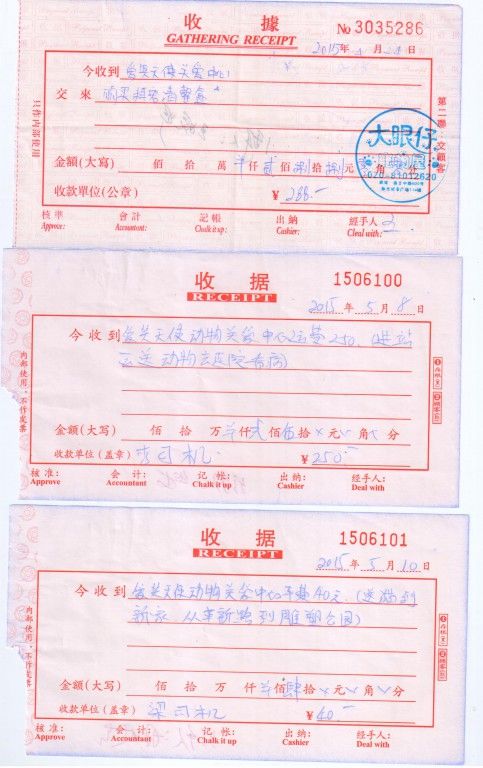 收 據
GATHERING RECEIPT
No 3035286
2015年4月24日
今收到 爱其天使关爱中心
交來
金額(大寫) 佰 拾 萬 仟 贰 佰 捌 拾 捌 元 角
收款單位(公章) ¥ 288.-
核準 Approve: 會計 Accountant: 記帳 Chalk it up: 出納 Cashier: 經手人 Cleal with:
只作內部使用
第二聯 交顧客
大眼仔
020-81012620
收 据
RECEIPT
1506100
2015 年 5 月 8 日
今 收 到 爱其天使动物关爱中心运费250. (进站
运送动物去医院看病)
金额(大写) 佰 拾 万 仟贰佰 拾 元 角 分
收款单位(盖章) 司机 ¥250.-
核 准: Approve 会 计: Accountant 记 帐: Chalk it up 出 纳: Cashier 经手人: Deal with
内部使用、不作发票
收 据
RECEIPT
1506101
2015 年 5 月 10 日
今 收 到 爱其天使动物关爱中心车费40元. (送猫到
新家 从革新路到雕塑公园)
金额(大写) 佰 拾 万 仟 佰肆拾 元 角 分
收款单位(盖章) 梁司机 ¥40.-
核 准: Approve 会 计: Accountant 记 帐: Chalk it up 出 纳: Cashier 经手人: Deal with
内部使用、不作发票